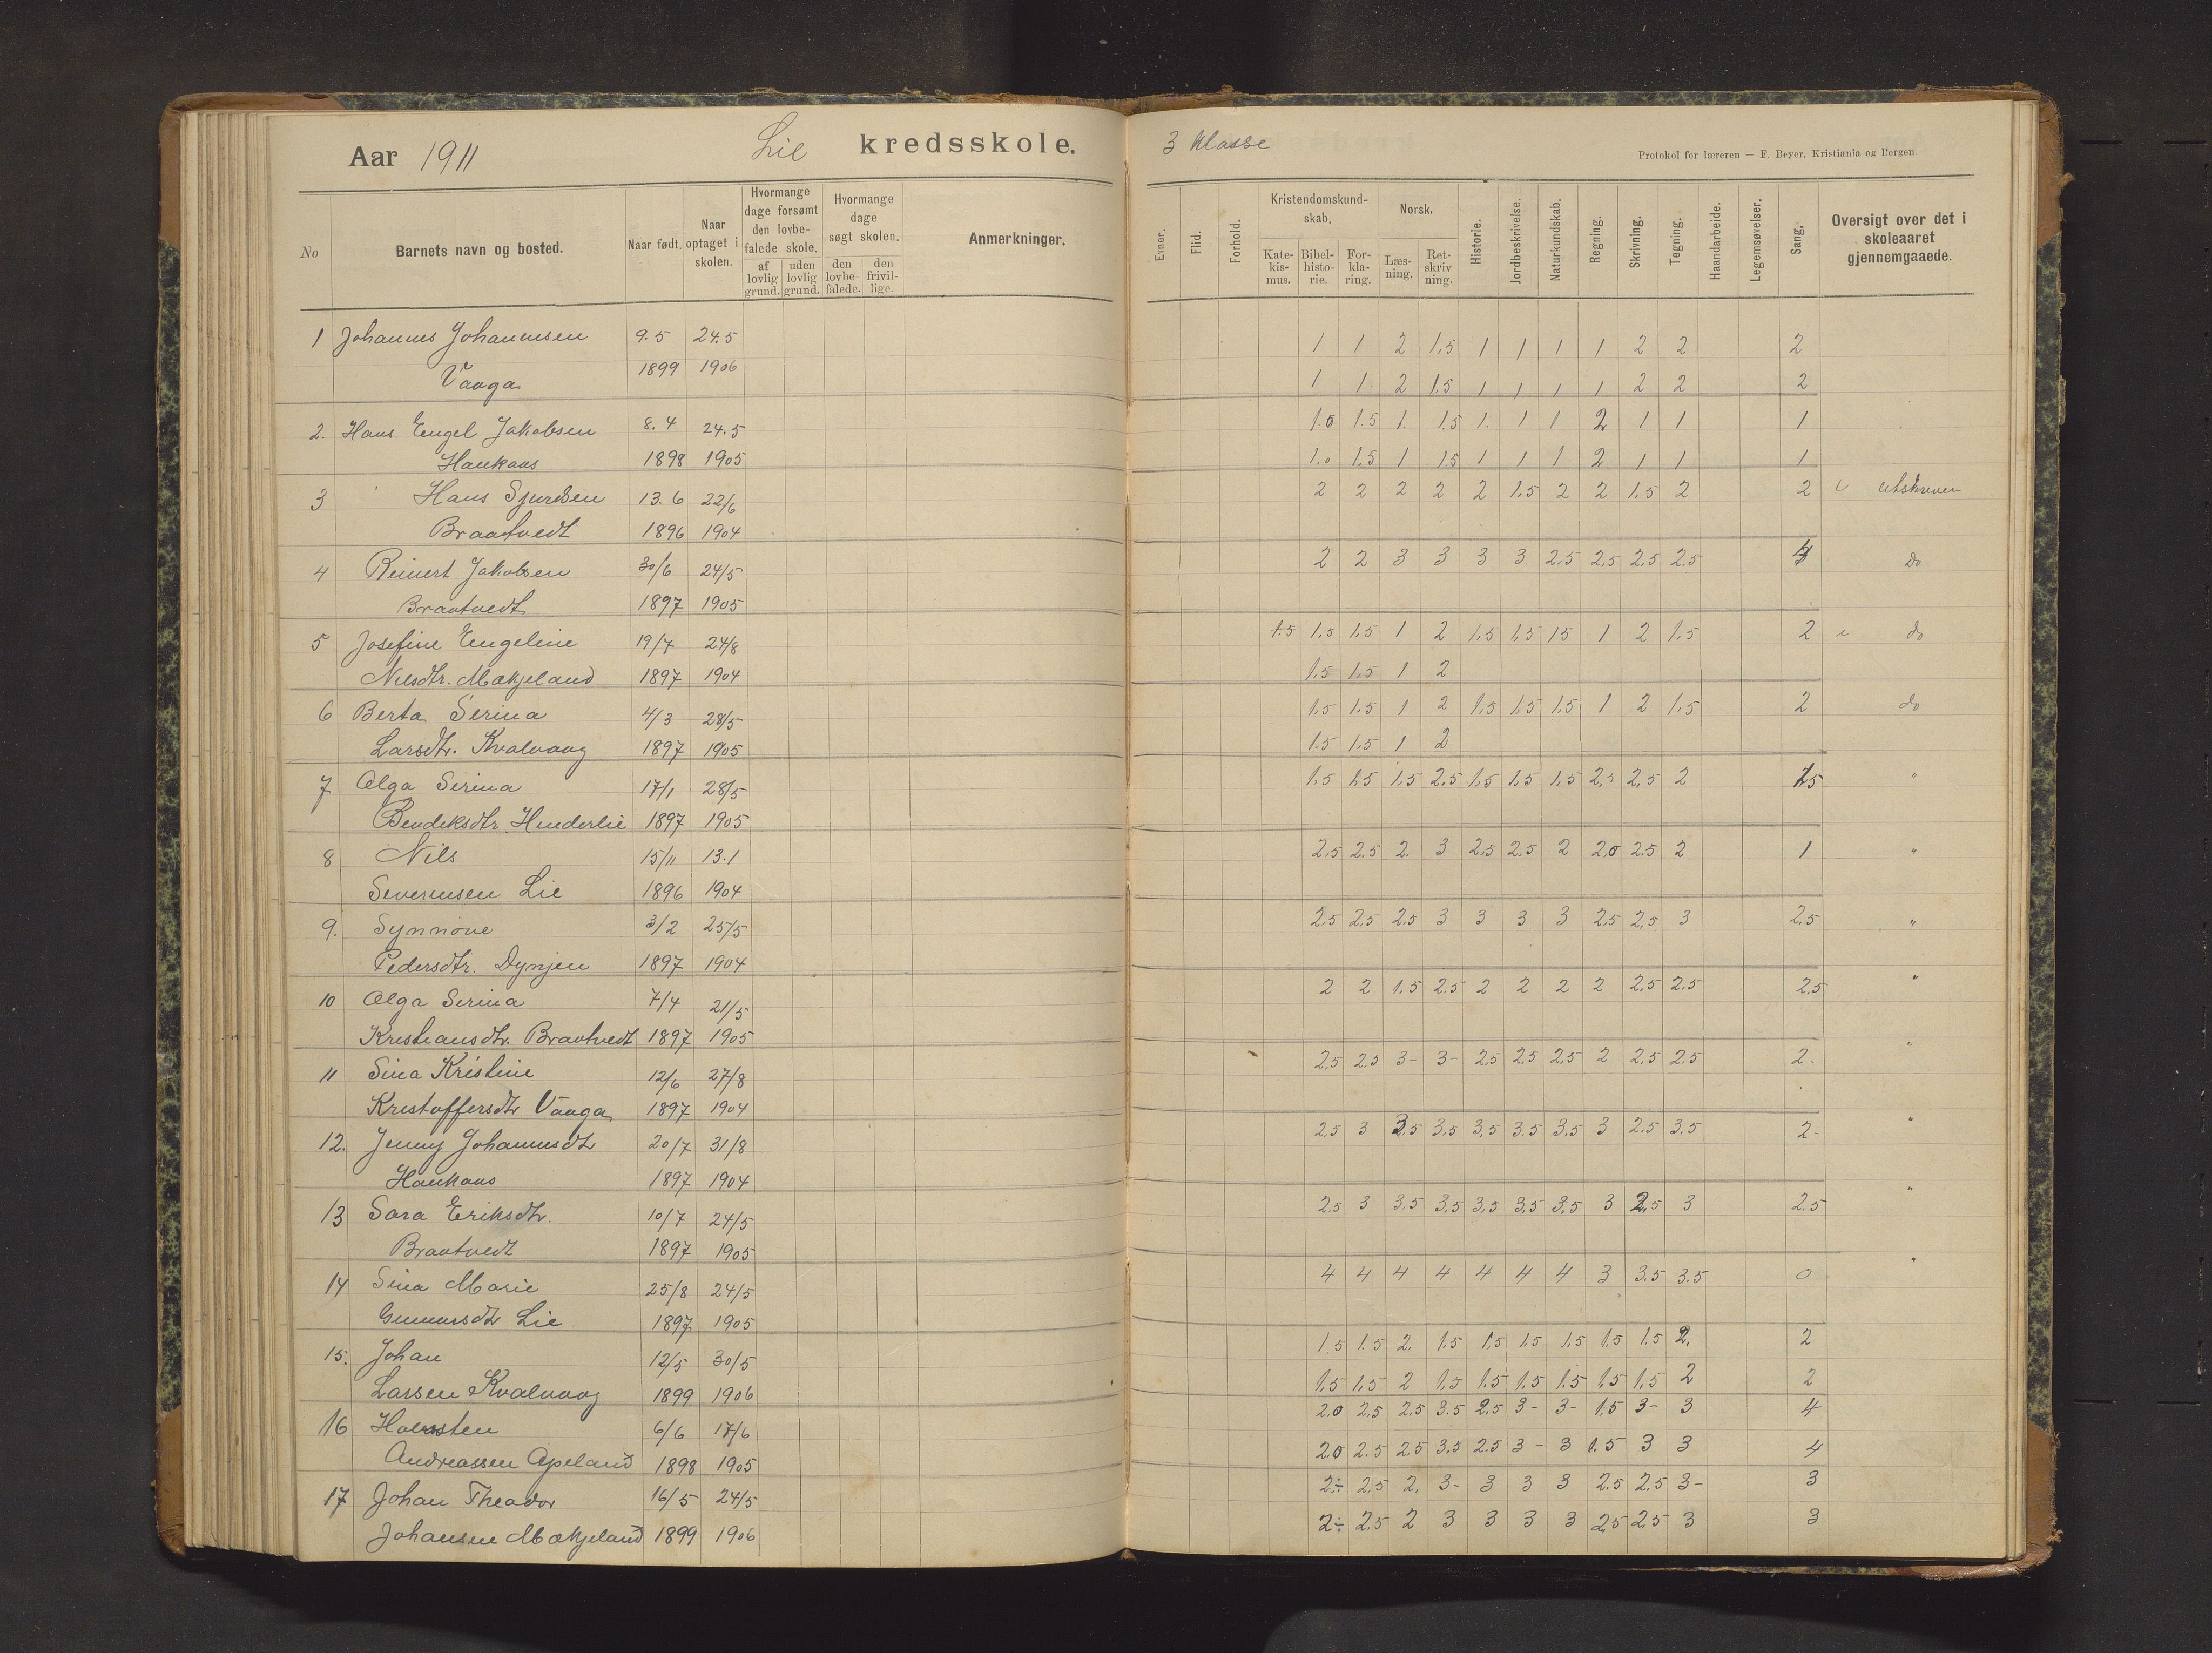 Aar 1911 Lie kredsskole.
3 klasse
Protokol for læreren — F. Beyer, Kristiania og Bergen.
No Barnets navn og bosted. Naar født. Naar optaget i skolen. Hvormange dage forsømt den lovbefalede skole. af lovlig grund. uden lovlig grund. Hvormange dage søgt skolen. den lovbefalede. den frivillige. Anmerkninger.
Evner. Flid. Forhold. Kristendomskundskab. Katekismus. Bibelhistorie. Forklaring. Norsk. Læsning. Retskrivning. Historie. Jordbeskrivelse. Naturkundskab. Regning. Skrivning. Tegning. Haandarbeide. Legemsøvelser. Sang. Oversigt over det i skoleaaret gjennemgaaede.
1 Johannes Johannesen 9.5 24.5 1 1 2 1.5 1 1 1 1 2 2 2
Vaaga 1899 1906 1 1 2 1.5 1 1 1 1 2 2 2
2. Hans Engel Jakobsen 8.4 24.5 1.0 1.5 1. 1.5 1. 1 1 2 1 1 1
Haukaas 1898 1905 1.0 1.5 1 1.5 1 1 1 2 1 1 1
3 Hans Sjursen 13.6 22/6 2 2 2 2 2 1.5 2 2 1.5 2 2 utskreven
Braatvedt 1896 1904
4 Reinert Jakobsen 30/6 24/5 2 2 3 3 3 3 2.5 2.5 2.5 2.5 4 do
Braatvedt 1897 1905
5 Josefine Engeline 19/7 24/8 1.5 1.5 1.5 1 2 1.5 1.5 1.5 1 2 1.5 2 do
Nilsdtr. Mækjeland 1897 1904 1.5 1.5 1 2
6 Berta Serina 4/3 28/5 1.5 1.5 1 2 1.5 1.5 1.5 1 2 1.5 2 do
Larsdtr. Kvalvaag 1897 1905 1.5 1.5 1 2
7 Olga Serina 17/1 28/5 1.5 1.5 1.5 2.5 1.5 1.5 1.5 2.5 2.5 2 1.5 "
Bendiksdtr. Hinderlie 1897 1905
8 Nils 15/11 13.1 2.5 2.5 2. 3 2.5 2.5 2 2.0 2.5 2 1 "
Severinsen Lie 1896 1904
9. Synnøve 3/2 25/5 2.5 2.5 2.5 3 3 3 3 2.5 2.5 3 2.5 "
Pedersdtr. Dynjen 1897 1904
10 Olga Serina 7/4 21/5 2 2 1.5 2.5 2 2 2 2 2.5 2.5 2.5 "
Kristiansdtr. Braatvedt 1897 1905
11 Sina Kristine 12/6 27/8 2.5 2.5 3- 3- 2.5 2.5 2.5 2 2.5 2.5 2. "
Kristoffersdtr Vaaga 1897 1904
12. Jenny Johannesdtr 20/7 31/8 2.5 3 3.5 3.5 3.5 3.5 3.5 3 2.5 3.5 2- "
Haukaas 1897 1904
13 Sara Eriksdtr. 10/7 24/5 2.5 3 3.5 3.5 3.5 3.5 3.5 3 2.5 3 2.5 "
Braatvedt 1897 1905
14 Sina Marie 25/8 24/5 4 4 4 4 4 4 4 3 3.5 3.5 0 "
Gunnarsdtr Lie 1897 1905
15. Johan 12/5 30/5 1.5 1.5 2. 1.5 1.5 1.5 1.5 1.5 1.5 2. 2
Larsen Kvalvaag 1899 1906 1.5 1.5 2 1.5 1.5 1.5 1.5 1.5 1.5 2 2
16 6/6 17/6 2.0 2.5 2.5 3.5 2.5 3- 3- 1.5 3- 3 4
Andreassen Apeland 1898 1905 2.0 2.5 2.5 3.5 2.5 3- 3 1.5 3 3 4
17 Johan Theodor 16/5 24/5 2÷ 2.5 2. 3- 3 3 3 2.5 2.5 3- 3
Johansen Mækjeland 1899 1906 2÷ 2.5 2 3 3 3 3 2.5 2.5 3 3